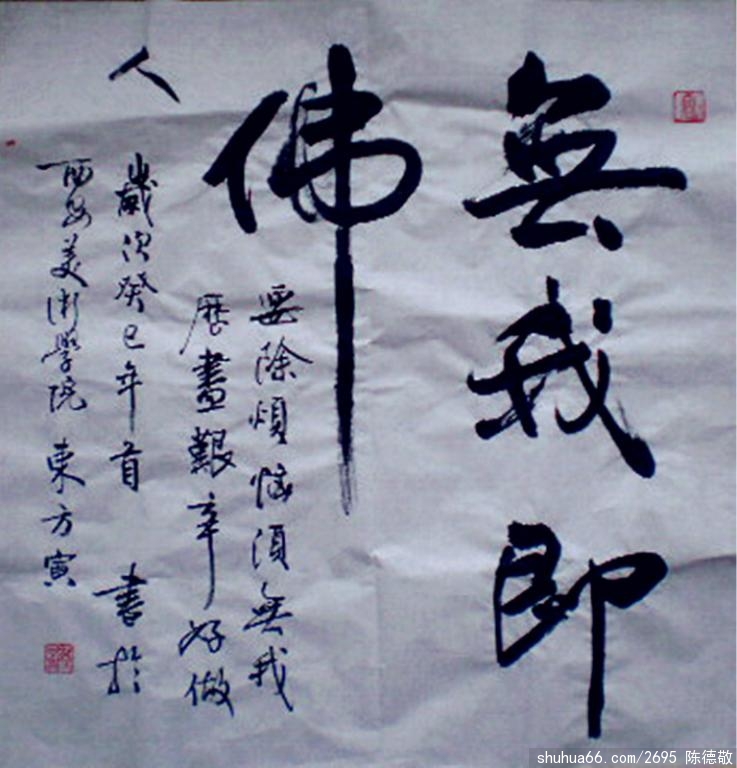 無我即
佛
要除煩惱須無我
歷盡艱辛好做
人
歲次癸巳年首 書於
西安美術學院 東方寅
shuhua66.com/2695 陈德敬